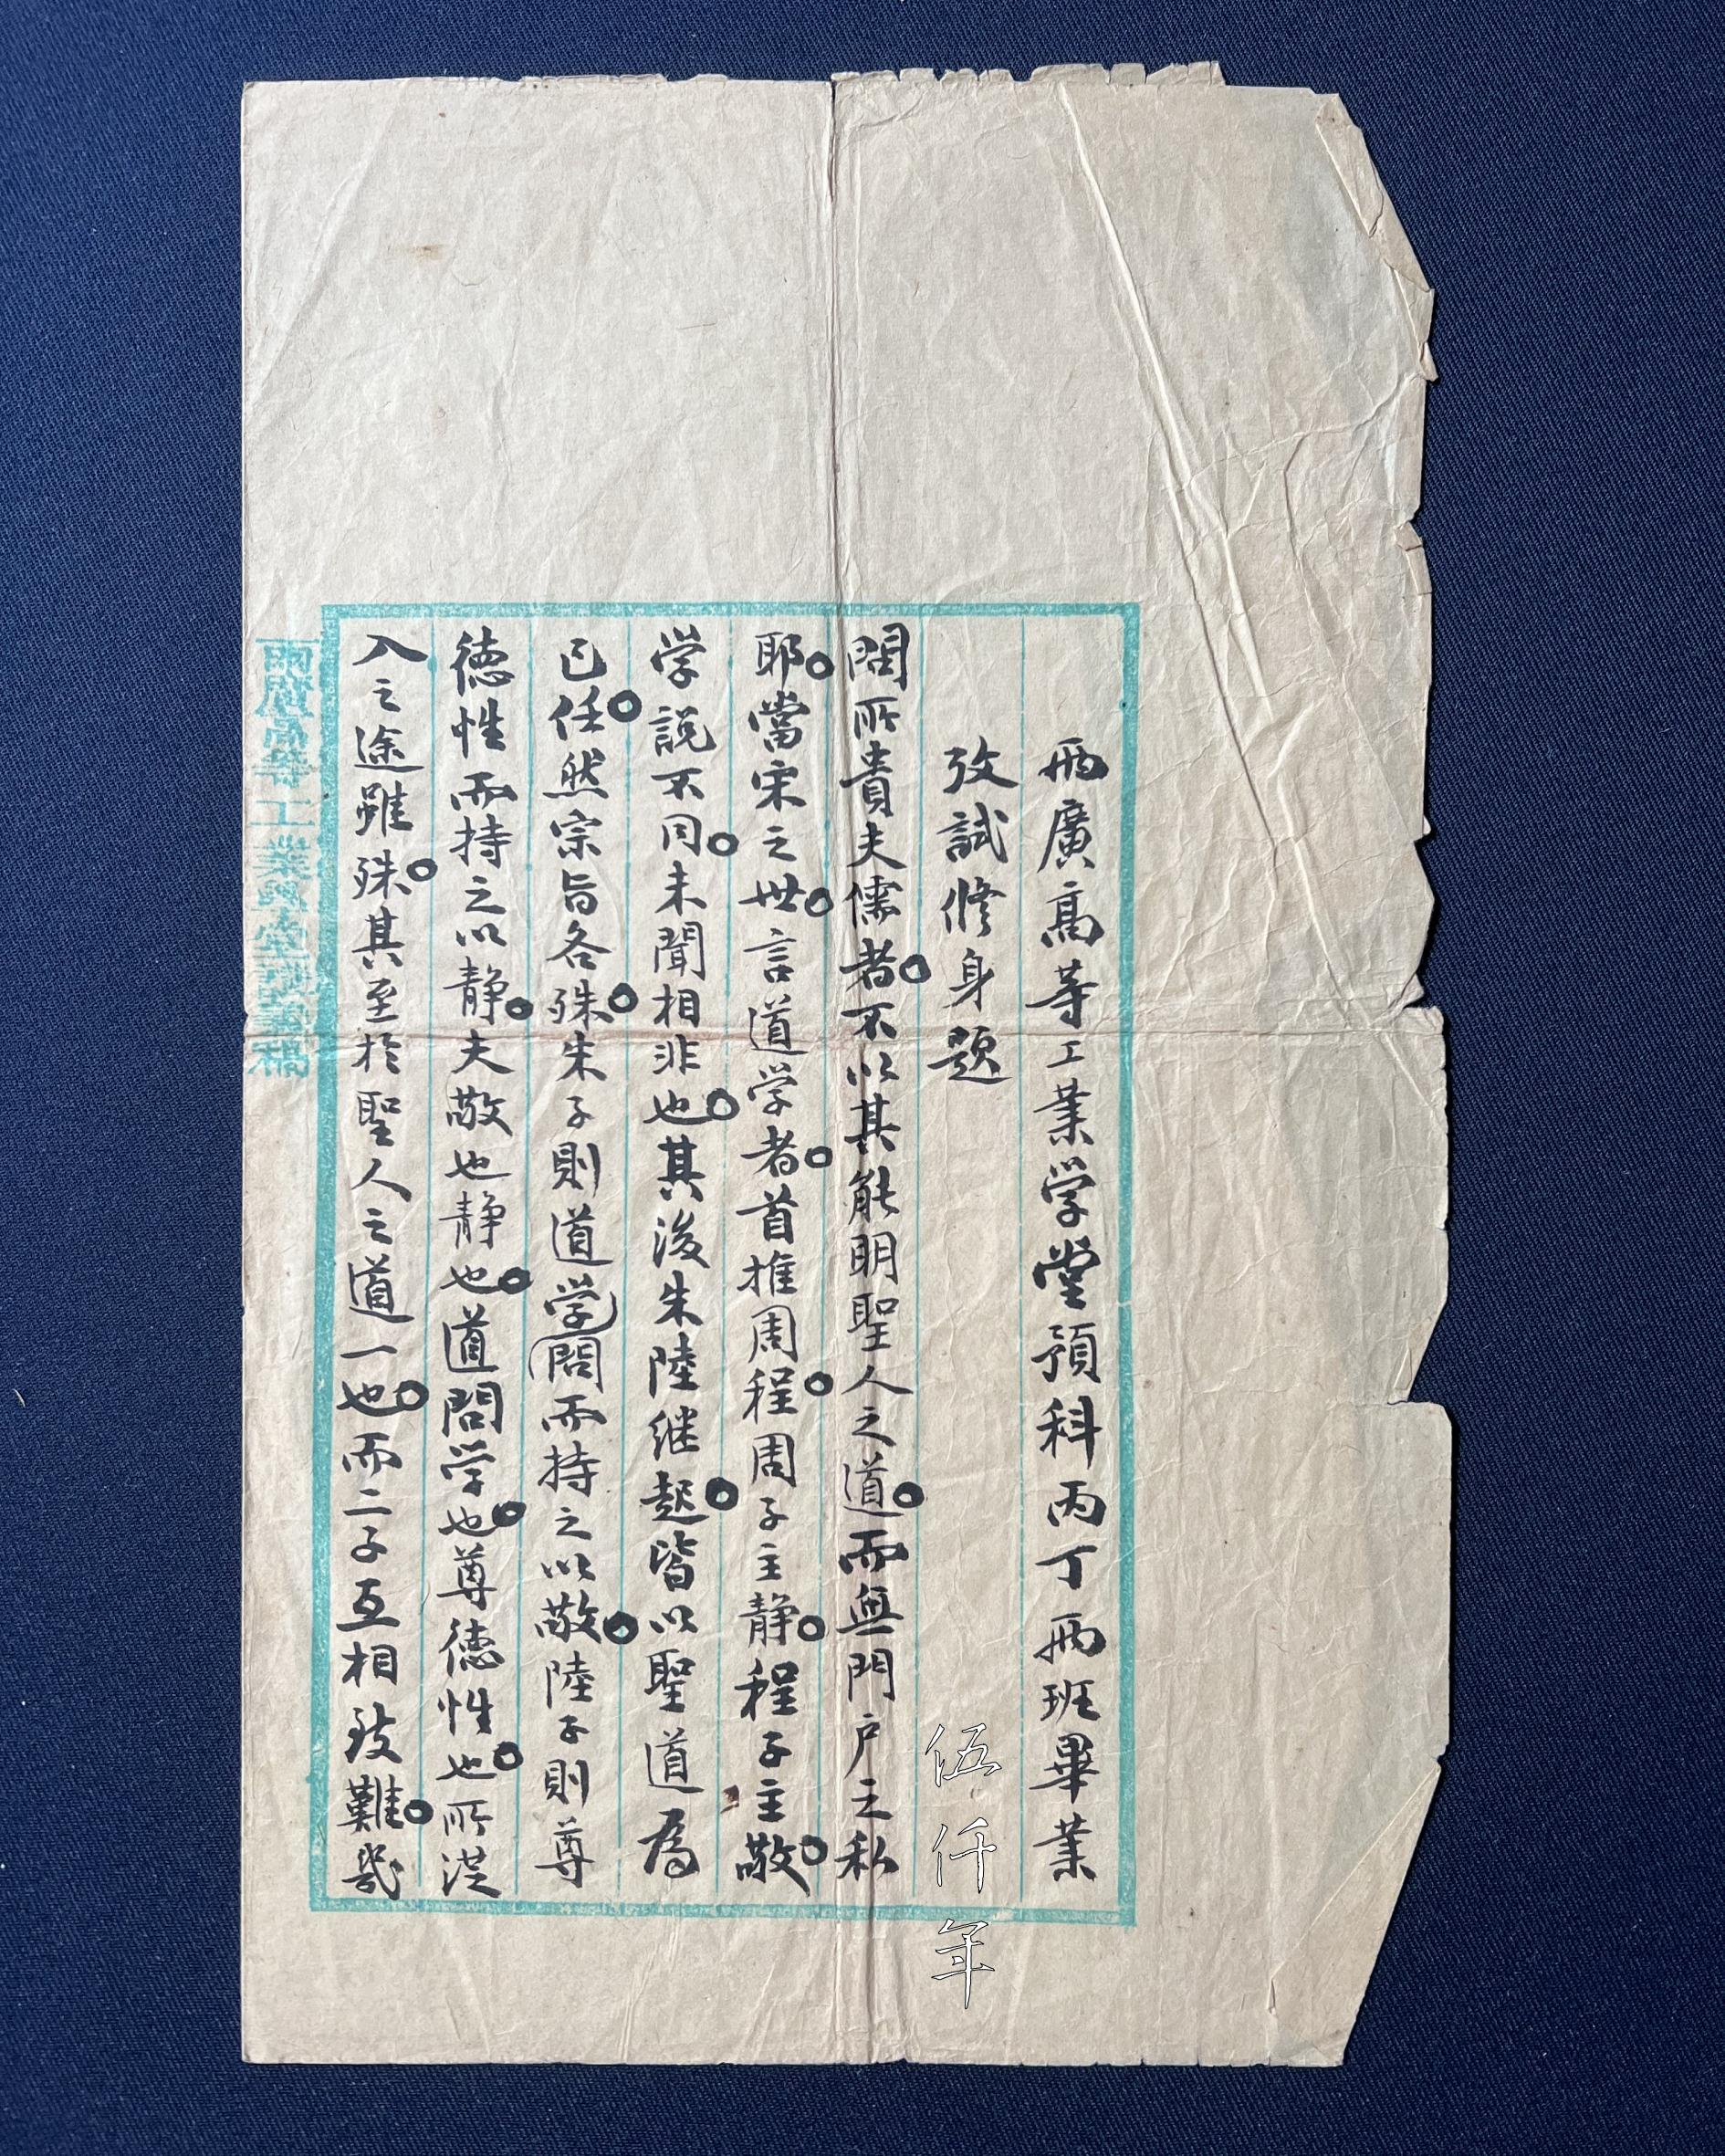 兩廣高等工業学堂預科丙丁兩班畢業
攷試修身題
問所貴夫儒者。不以其能明聖人之道。而無門户之私
耶。當宋之世。言道学者。首推周程。周子主静。程子主敬。
学説不同。未聞相非也。其後朱陸継起。皆以聖道為
己任。然宗旨各殊。朱子則道学問而持之以敬。陸子則尊
徳性而持之以静。夫敬也静也。道問学也。尊徳性也。所從
入之途雖殊。其至於聖人之道一也。而二子互相致難。幾
兩廣高等工業學堂
伍仟年